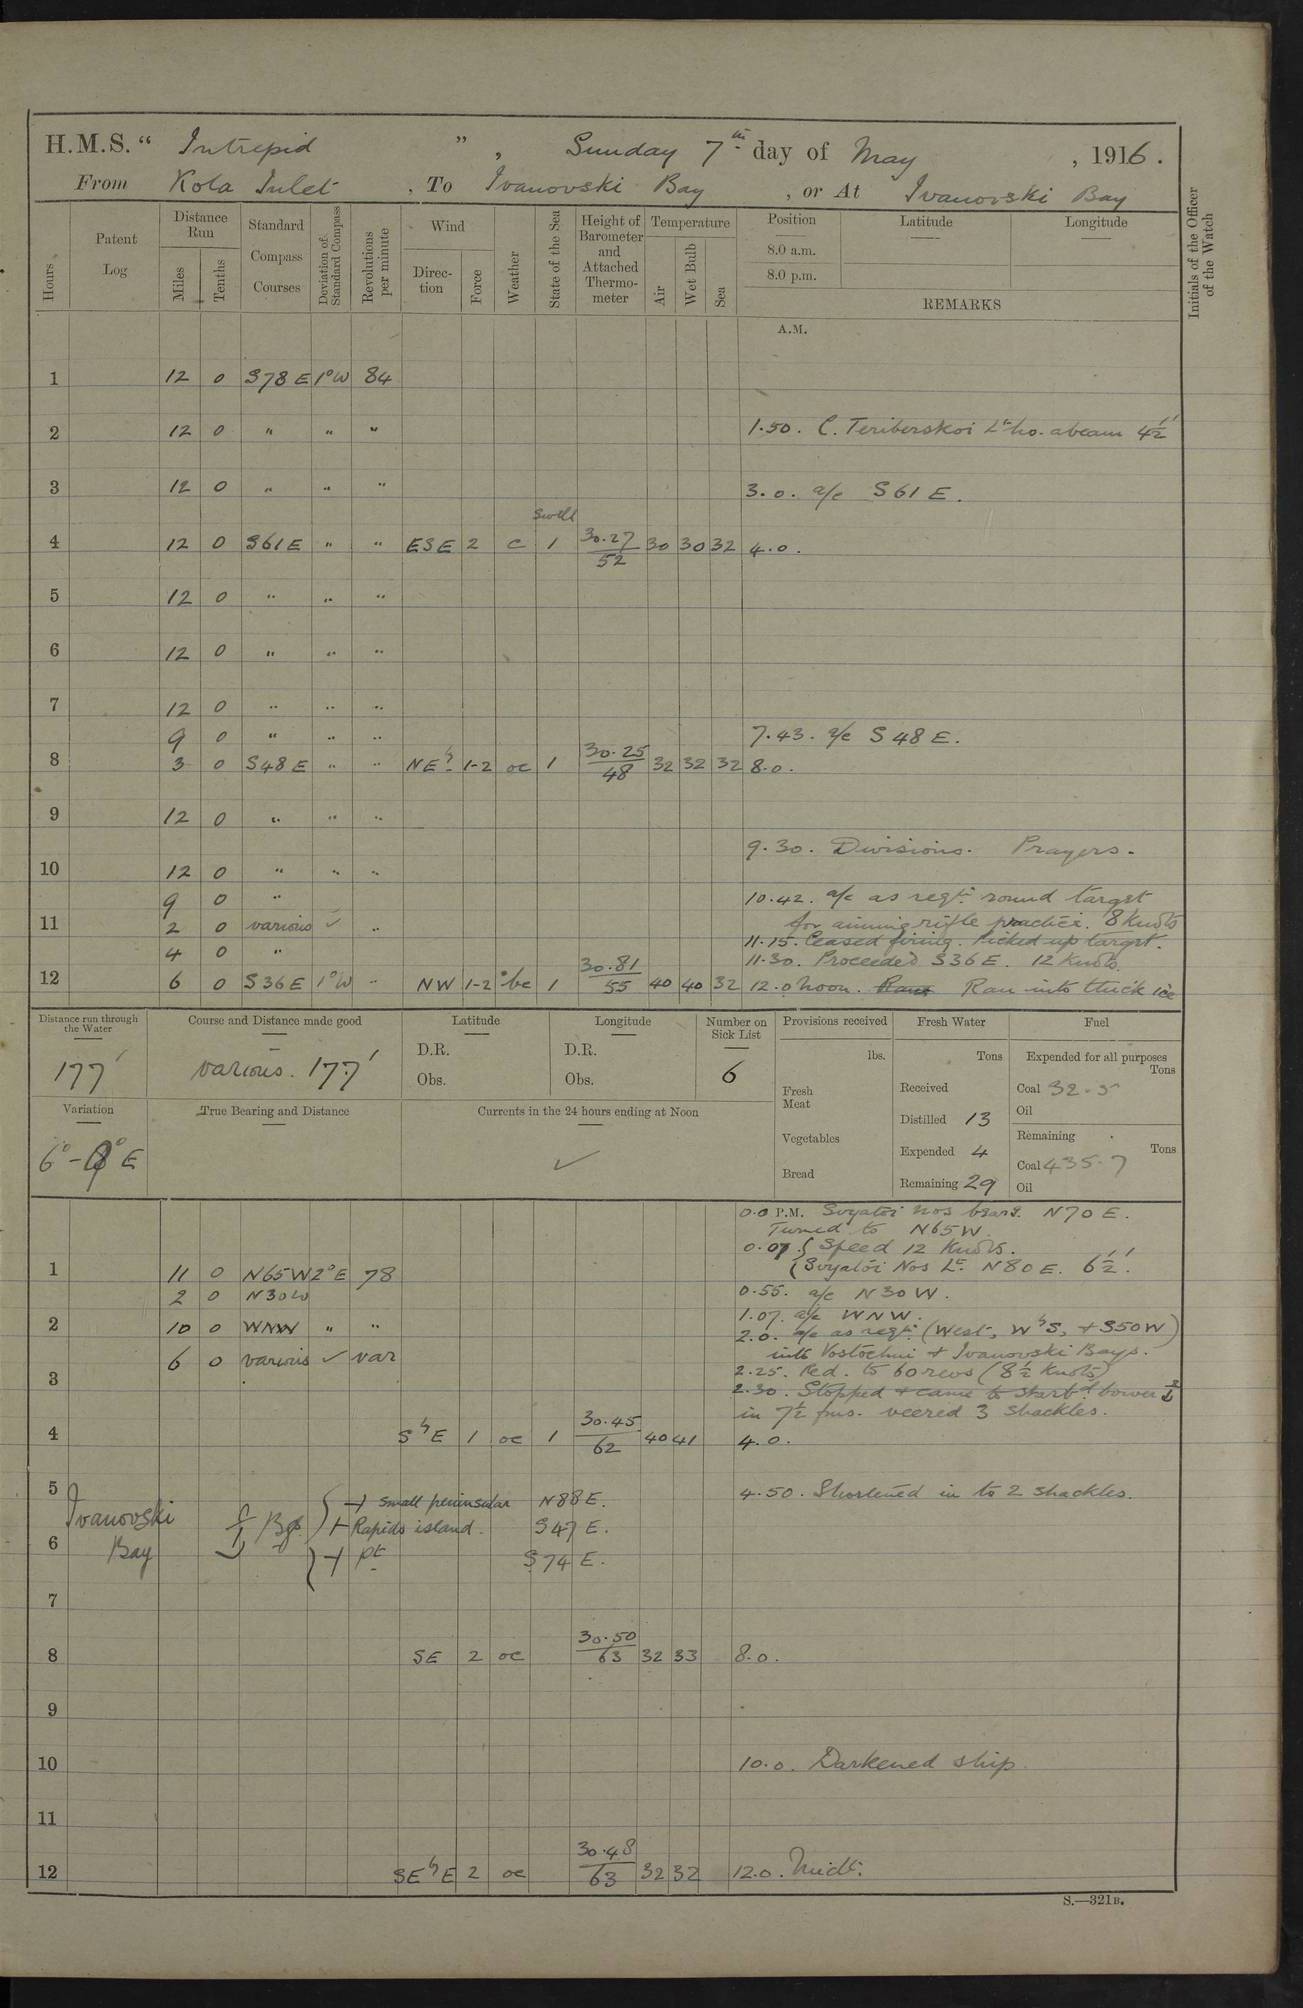 H.M.S. “ Intrepid ” , Sunday 7th day of May , 1916.
From Kola Inlet , To Ivanovski Bay , or At Ivanovski Bay
Hours
Patent Log
Distance Run
Miles
Tenths
Standard Compass Courses
Deviation of Standard Compass
Revolutions per minute
Wind
Direction
Force
Weather
State of the Sea
Height of Barometer and Attached Thermometer
Temperature
Air
Wet Bulb
Sea
Position
8.0 a.m.
8.0 p.m.
Latitude
Longitude
REMARKS
Initials of the Officer of the Watch
A.M.
1 12 0 S78E 1°W 84
2 12 0 " " " 1.50. C. Teriberskoi Lt ho. abeam 4½'
3 12 0 " " " 3.0. a/c S61E.
Swell
4 12 0 S61E " " ESE 2 c 1 30.27/52 30 30 32 4.0.
5 12 0 " " "
6 12 0 " " "
7 12 0 " " "
9 0 " " " 7.43. a/c S48E.
8 3 0 S48E " " NE 1-2 oc 1 30.25/48 32 32 32 8.0.
9 12 0 " " "
9.30. Divisions. Prayers.
10 12 0 " " "
9 0 " 10.42. a/c as reqd round target
11 2 0 various ✓ " for aiming rifle practice. 8 Knots
4 0 " 11.15. Ceased firing. Picked up target.
11.30. Proceeded S36E. 12 Knots.
12 6 0 S36E 1°W " NW 1-2 bc 1 30.81/55 40 40 32 12.0 noon. Ran into thick ice
Distance run through the Water
177'
Course and Distance made good
various. 177'
Latitude
D.R.
Obs.
Longitude
D.R.
Obs.
Number on Sick List
6
Provisions received
lbs.
Fresh Meat
Vegetables
Bread
Fresh Water
Tons
Received
Distilled 13
Expended 4
Remaining 29
Fuel
Expended for all purposes
Tons
Coal 32.5
Oil
Remaining
Tons
Coal 435.7
Oil
Variation
6°- E
True Bearing and Distance
Currents in the 24 hours ending at Noon
✓
0.0 P.M. Svyatoi Nos bears N70E.
Turned to N65W.
0.07 { Speed 12 Knots.
1 11 0 N65W 2°E 78 { Svyatoi Nos Lt. N80E. 6½'.
2 0 N30W 0.55. a/c N30W.
1.07. a/c WNW.
2 10 0 WNW " " 2.0. a/c as reqd. (West, WbyS, + S50W)
6 0 various ✓ var into Vostochni + Ivanovski Bays.
3 2.25. Red. to 60 revs (8½ Knots)
2.30. Stopped + came to starbd bower
in 7½ fms. veered 3 shackles.
4 SbyE 1 oc 1 30.45/62 40 41 4.0.
5 4.50. Shortened in to 2 shackles.
Ivanovski Bay
small peninsular N88E.
Rapids island. S47E.
6 Pt S74E.
7
8 SE 2 oc 30.50/63 32 33 8.0.
9
10 10.0. Darkened ship.
11
12 SEbyE 2 oc 30.48/63 32 32 12.0. Midt.
S.—321B.